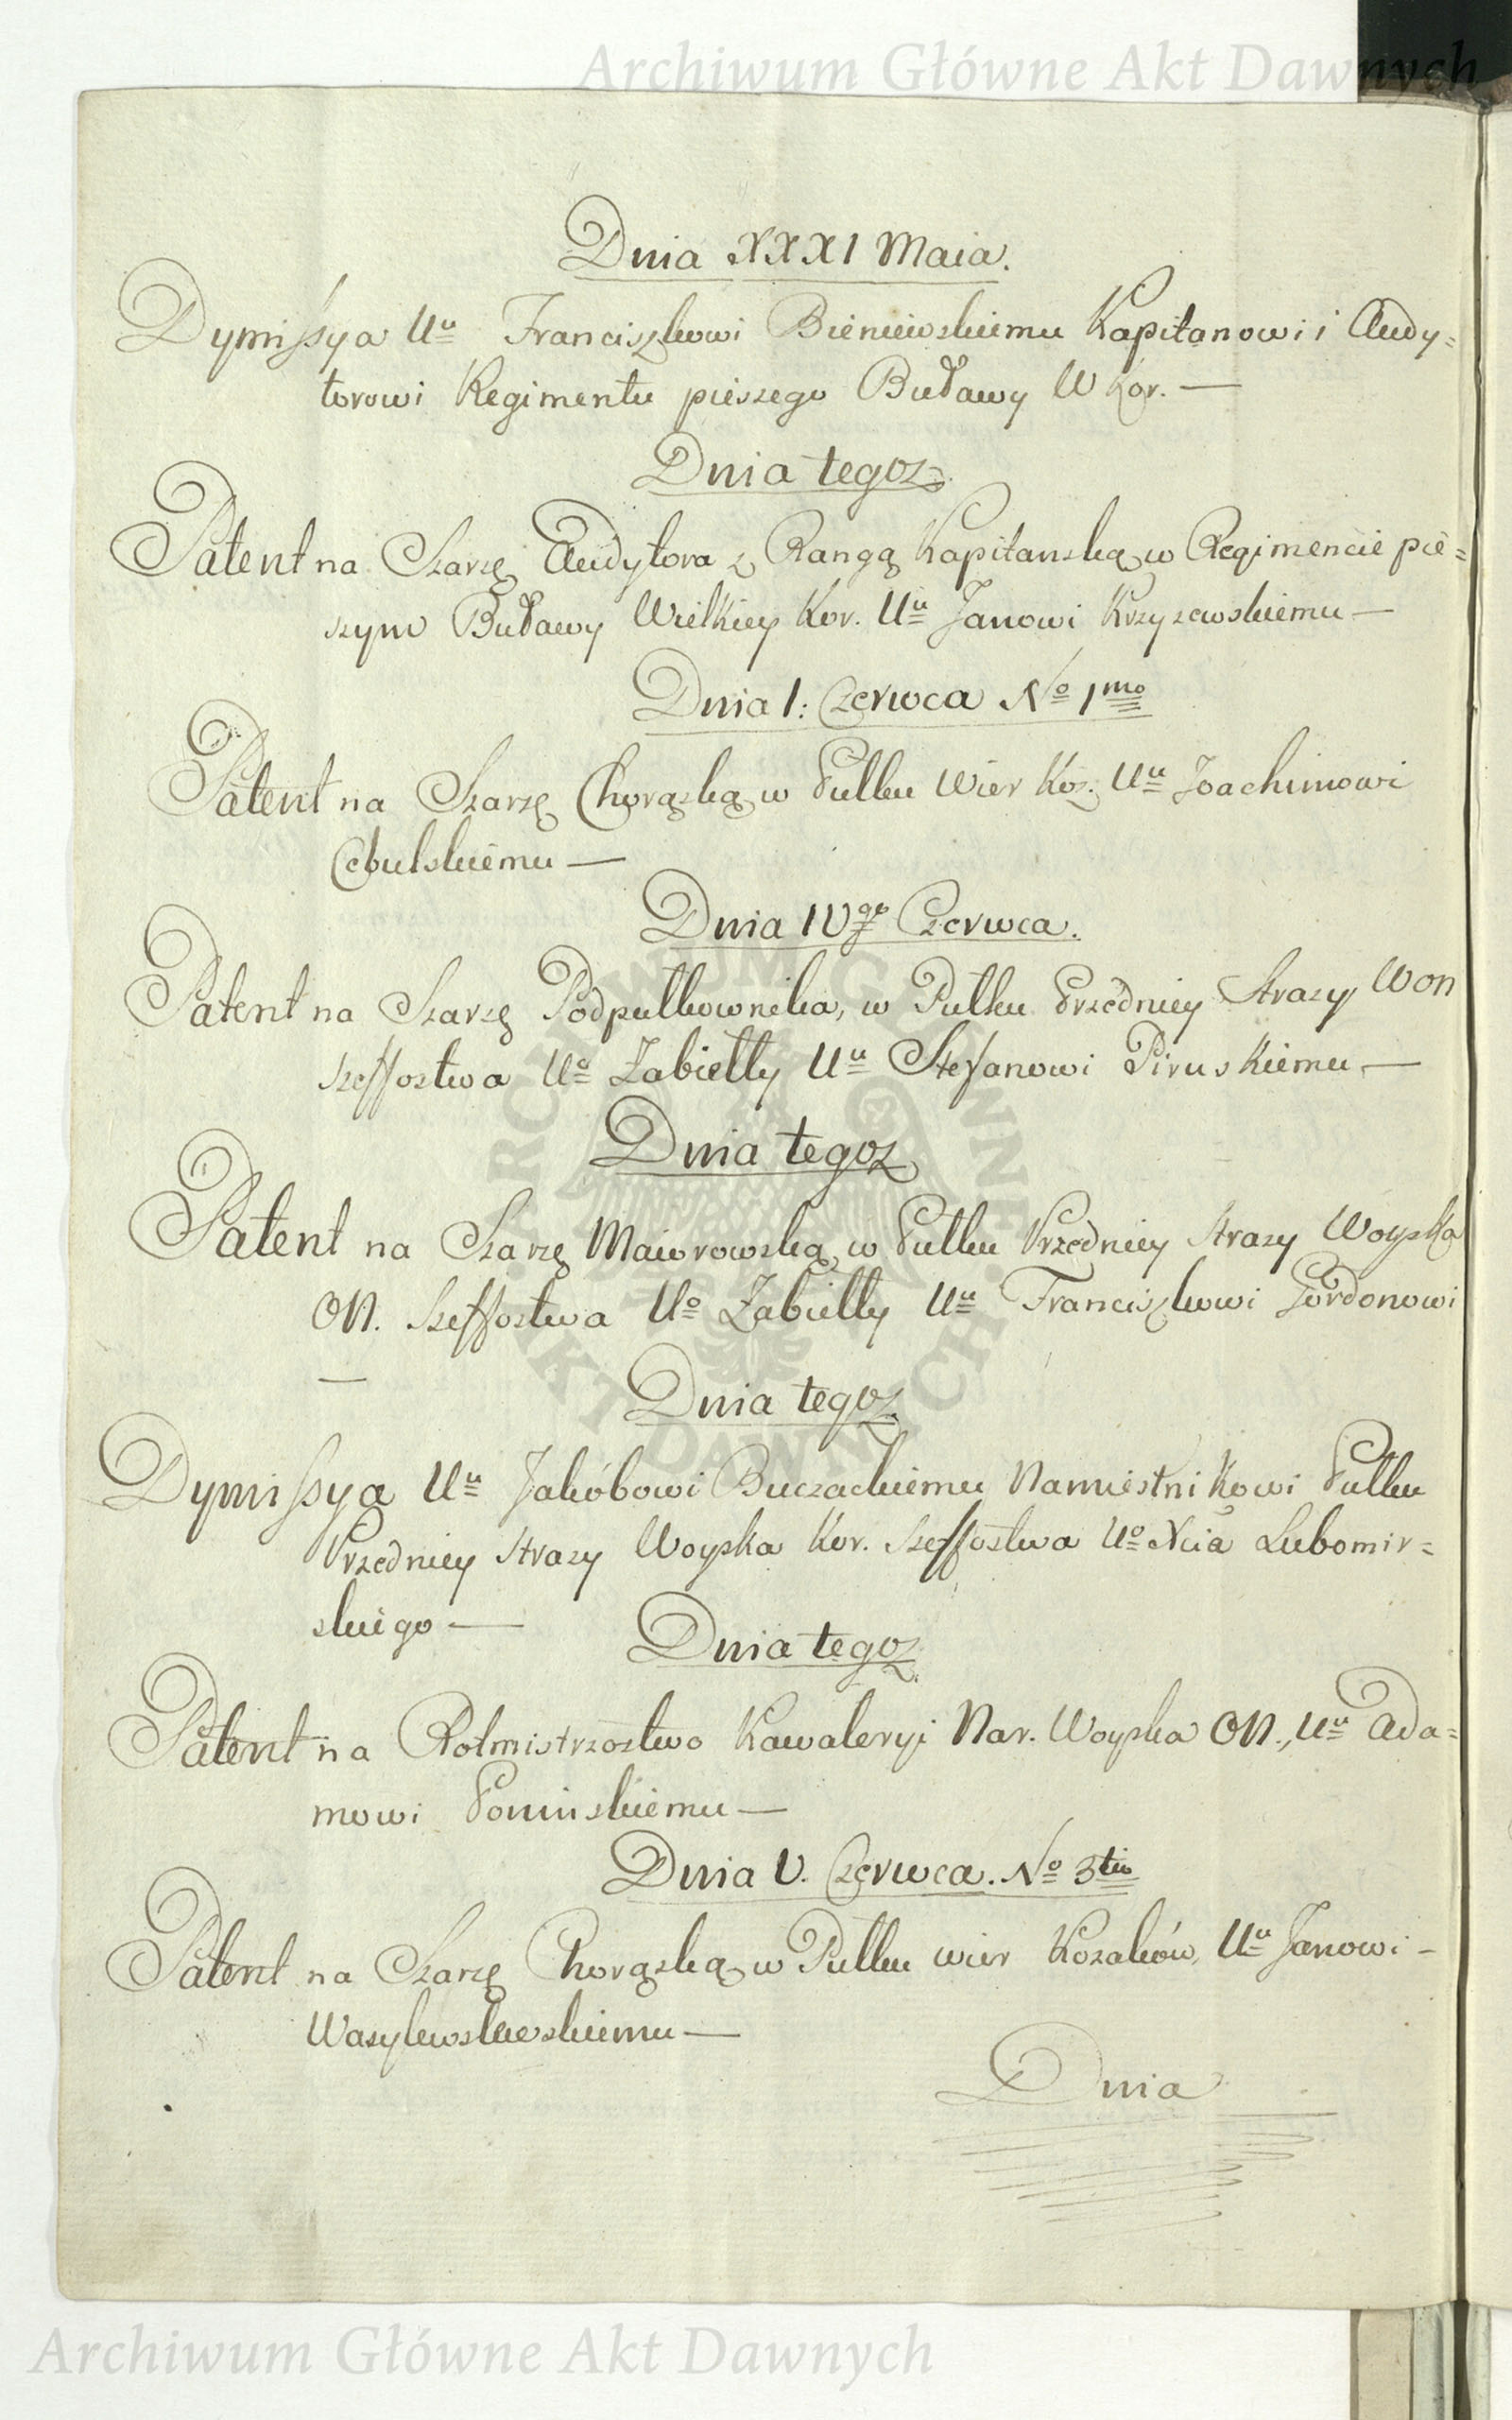 Archiwum Główne Akt Dawnych
Dnia XXXI Maia.
Dymissya Uu Franciszkowi Bieniewskiemu Kapitanowi i Audy=
torowi Regimentu pieszego Buławy W Kor. —
Dnia tegoz
Patent na Szarzę Audytora z Rangą Kapitanską w Regimencie pie=
szym Buławy Wielkiey Kor. Uu Janowi Krzyzewskiemu —
Dnia 1: Czerwca No 1mo
Patent na Szarzę Chorązką w Pułku Wier Koz. Uu Joachimowi
Cebulskiemu —
Dnia IVgo Czerwca.
Patent na Szarzę Podpułkownika, w Pułku Przedniey Strazy WON
Szeffostwa Uo Zabiełły Uu Stefanowi Piruskiemu —
Dnia tegoz
Patent na Szarzę Maiorowską w Pułku Przedniey Strazy Woyska
ON. Szeffostwa Uo Zabiełły Uu Franciszkowi Gordonowi
—
Dnia tegoz.
Dymissya Uu Jakóbowi Buczackiemu Namiestnikowi Pułku
Przedniey Strazy Woyska Kor. Szeffostwa Uo Xcia Lubomir=
skiego —
Dnia tegoz.
Patent na Rotmistrzostwo Kawaleryi Nar. Woyska ON., Uu Ada=
mowi Poninskiemu —
Dnia V. Czerwca. No 3tio
Patent na Szarzę Chorązką w Pułku wier Kozaków, Uu Janowi —
Dnia
ARCHIWUM GŁÓWNE AKT DAWNYCH
Archiwum Główne Akt Dawnych